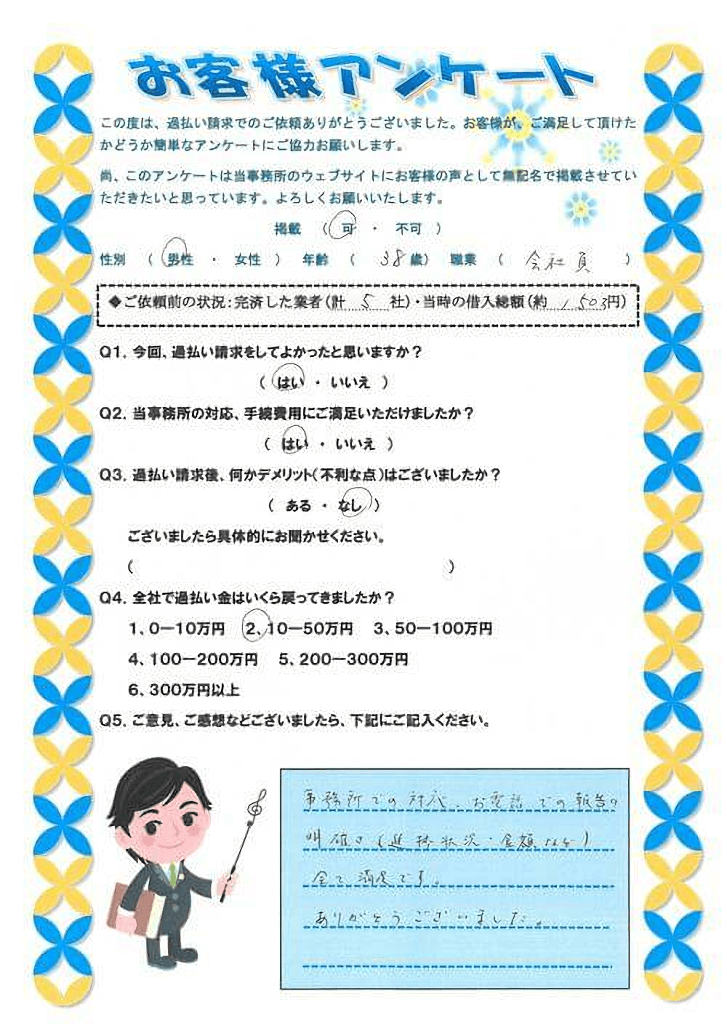 お客様アンケート
この度は、過払い請求でのご依頼ありがとうございました。お客様が、ご満足して頂けた
かどうか簡単なアンケートにご協力お願いします。
尚、このアンケートは当事務所のウェブサイトにお客様の声として無記名で掲載させてい
ただきたいと思っています。よろしくお願いいたします。
掲載 （ 可 ・ 不可 ）
性別 （ 男性 ・ 女性 ） 年齢 （ 38歳） 職業 （ 会社員 ）
◆ご依頼前の状況：完済した業者（計 5 社）・当時の借入総額（約 1,503円）
Q1．今回、過払い請求をしてよかったと思いますか？
（ はい ・ いいえ ）
Q2．当事務所の対応、手続費用にご満足いただけましたか？
（ はい ・ いいえ ）
Q3．過払い請求後、何かデメリット（不利な点）はございましたか？
（ ある ・ なし ）
ございましたら具体的にお聞かせください。
（ ）
Q4．全社で過払い金はいくら戻ってきましたか？
1、0－10万円 2、10－50万円 3、50－100万円
4、100－200万円 5、200－300万円
6、300万円以上
Q5．ご意見、ご感想などございましたら、下記にご記入ください。
事務所での対応、お電話での報告の
明確さ（進捗状況・金額など）
全て満足です。
ありがとうございました。